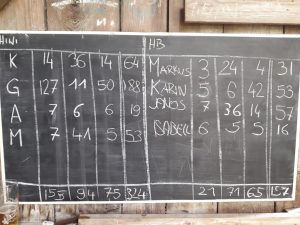 HINI HB
K 14 36 14 64 MARKUS 3 24 4 31
G 127 11 50 188 KARIN 5 6 42 53
A 7 6 6 19 JONAS 7 36 14 57
M 7 41 5 53 ISABELL 6 5 5 16
155 94 75 324 21 71 65 157